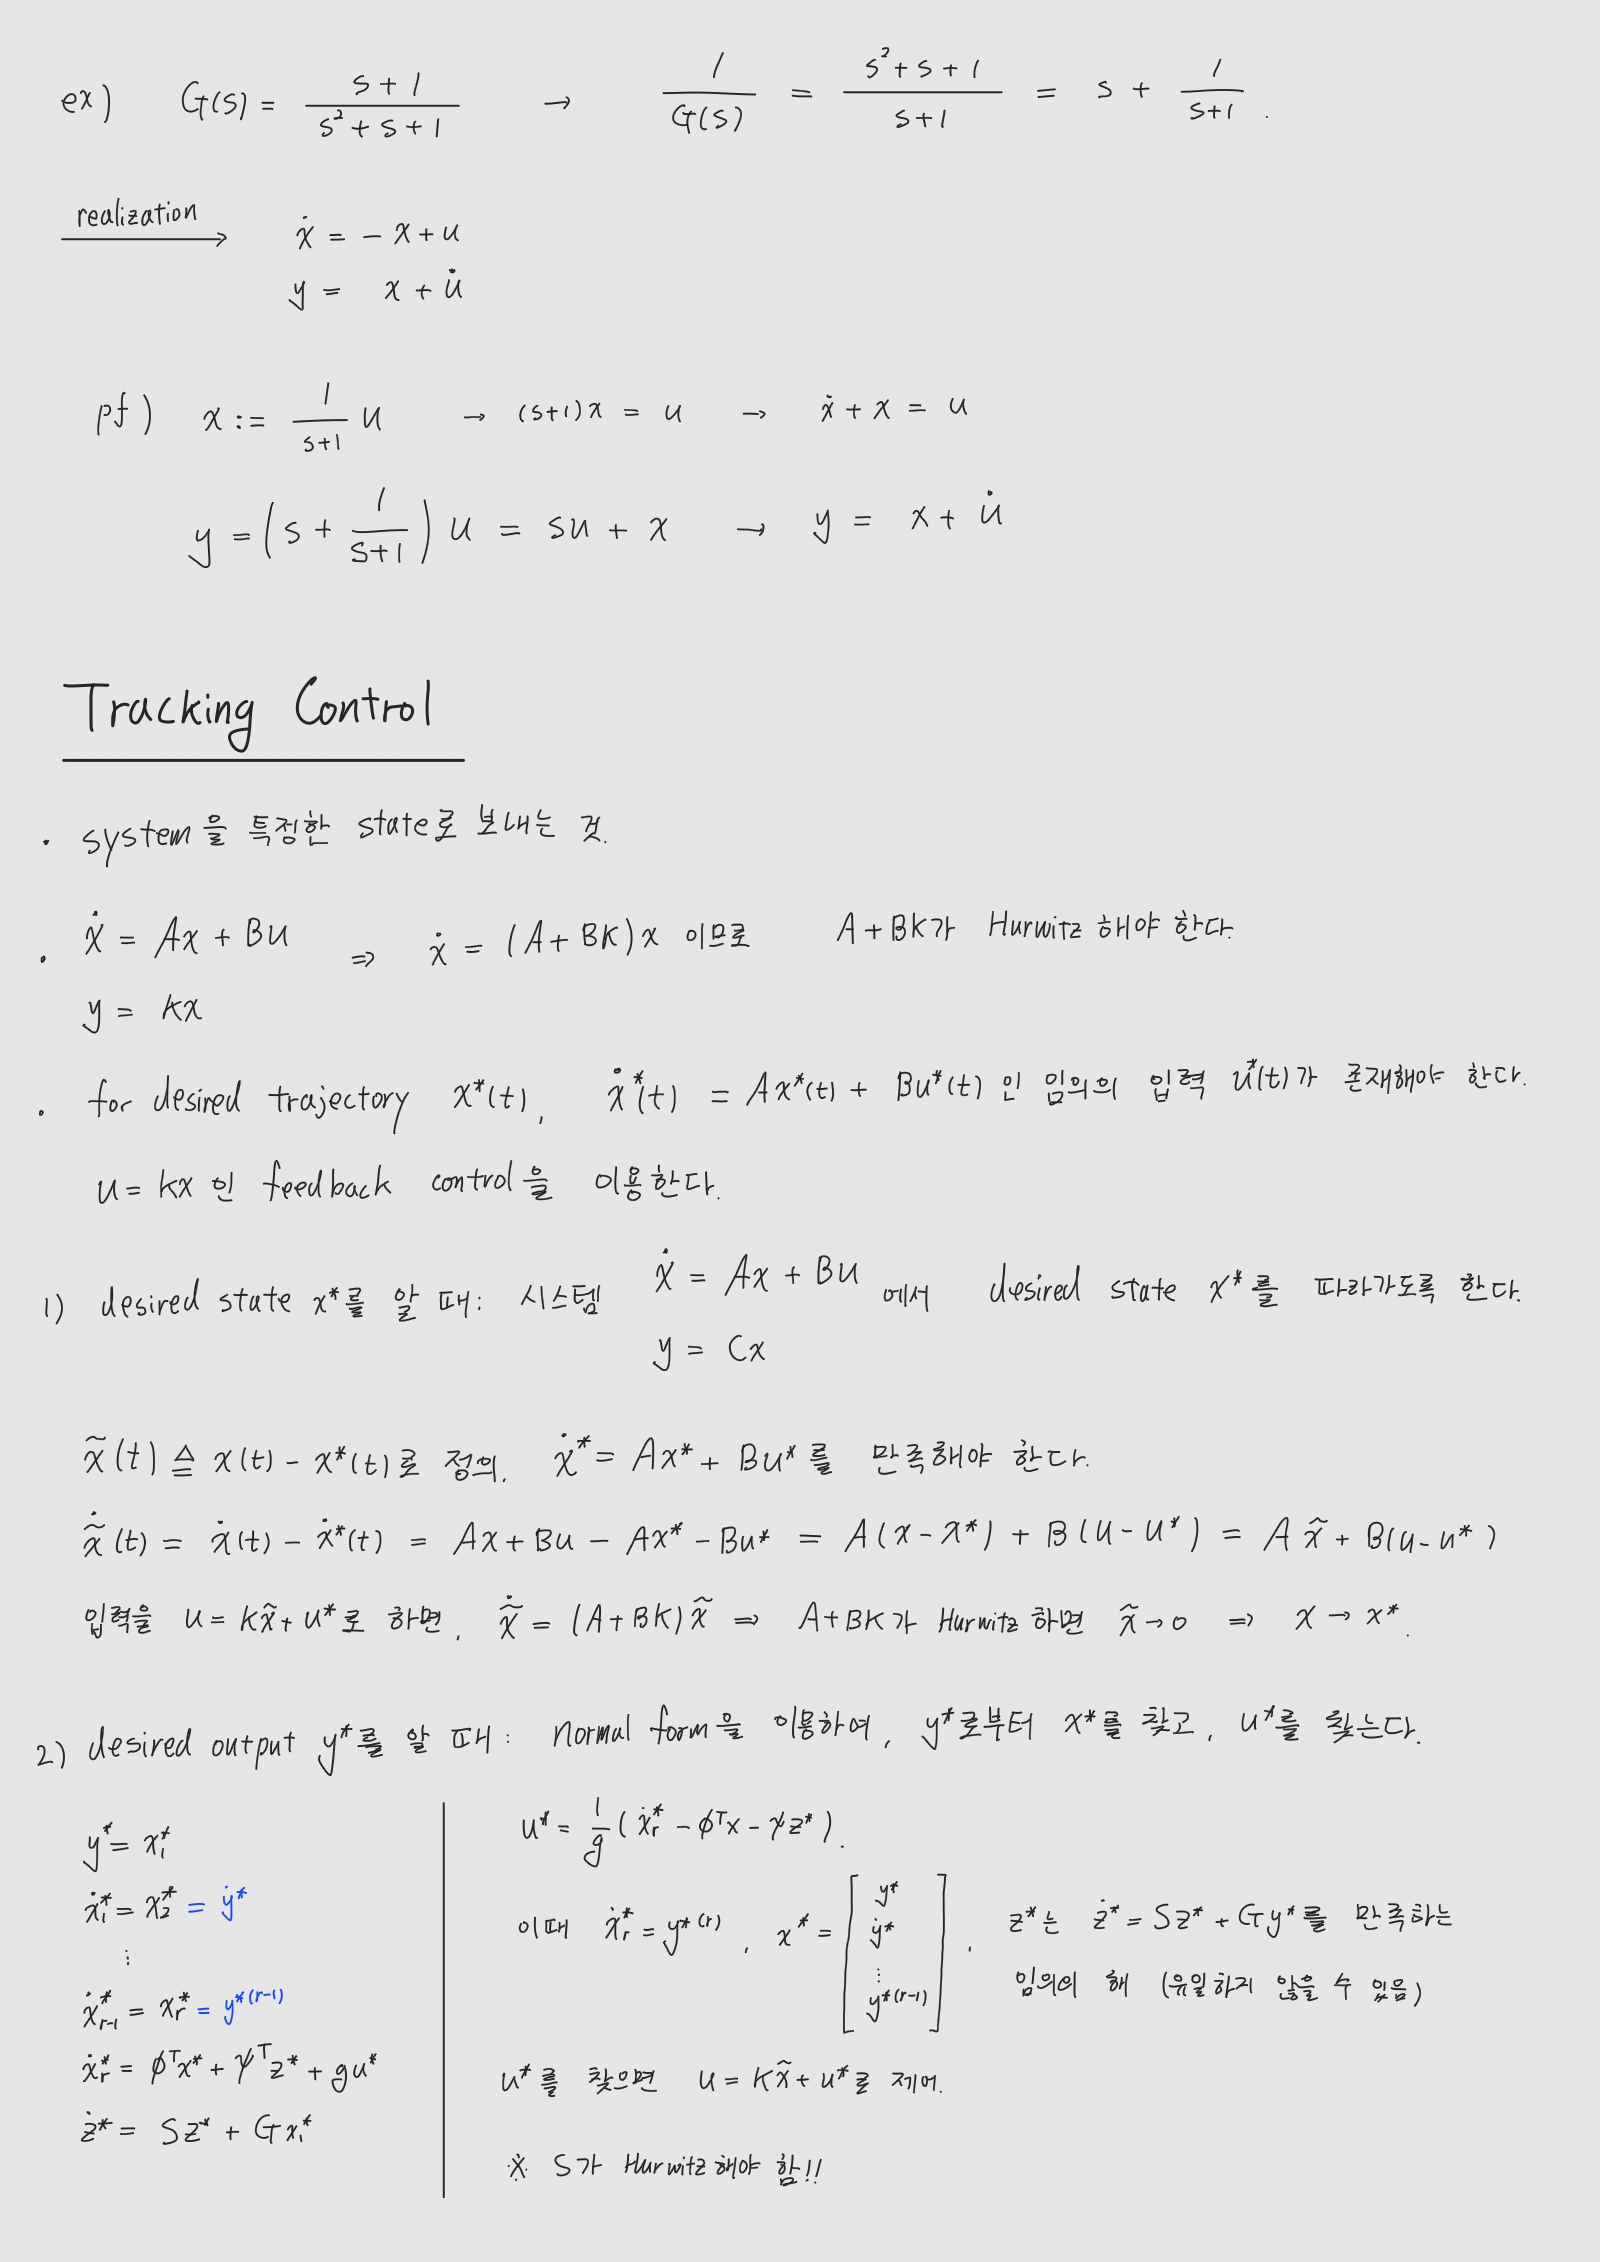 ex) G(s) = (s+1)/(s²+s+1) → 1/G(s) = (s²+s+1)/(s+1) = s + 1/(s+1) .
realization → ẋ = - x + u
y = x + u̇
pf) x := 1/(s+1) u → (s+1)x = u → ẋ + x = u
y = (s + 1/(s+1)) u = su + x → y = x + u̇
Tracking Control
· system을 특정한 state로 보내는 것.
· ẋ = Ax + Bu ⇒ ẋ = (A+BK)x 이므로 A+BK가 Hurwitz 해야 한다.
y = kx
· for desired trajectory x*(t), ẋ*(t) = Ax*(t) + Bu*(t) 인 임의의 입력 u*(t)가 존재해야 한다.
u = kx 인 feedback control을 이용한다.
1) desired state x*를 알 때: 시스템 ẋ = Ax + Bu 에서 desired state x*를 따라가도록 한다.
y = Cx
x̃(t) ≜ x(t) - x*(t)로 정의. ẋ* = Ax* + Bu*를 만족해야 한다.
x̃̇(t) = ẋ(t) - ẋ*(t) = Ax + Bu - Ax* - Bu* = A(x-x*) + B(u-u*) = A x̃ + B(u-u*)
입력을 u = Kx̃ + u*로 하면, x̃̇ = (A+BK)x̃ ⇒ A+BK가 Hurwitz 하면 x̃→0 ⇒ x → x*.
2) desired output y*를 알 때: normal form을 이용하여, y*로부터 x*를 찾고, u*를 찾는다.
y* = x₁*
ẋ₁* = x₂* = ẏ*
⋮
ẋ*r-1 = x*r = y*(r-1)
ẋr* = φᵀx* + ψᵀz* + gu*
ż* = Sz* + Gx₁*
u* = 1/g (ẋr* - φᵀx - ψz*).
이때 ẋr* = y*(r), x* = [y* ẏ* ⋮ y*(r-1)], z*는 ż* = Sz* + Gy*를 만족하는
임의의 해 (유일하지 않을 수 있음)
u*를 찾으면 u = Kx̃ + u*로 제어.
※ S가 Hurwitz 해야 함!!